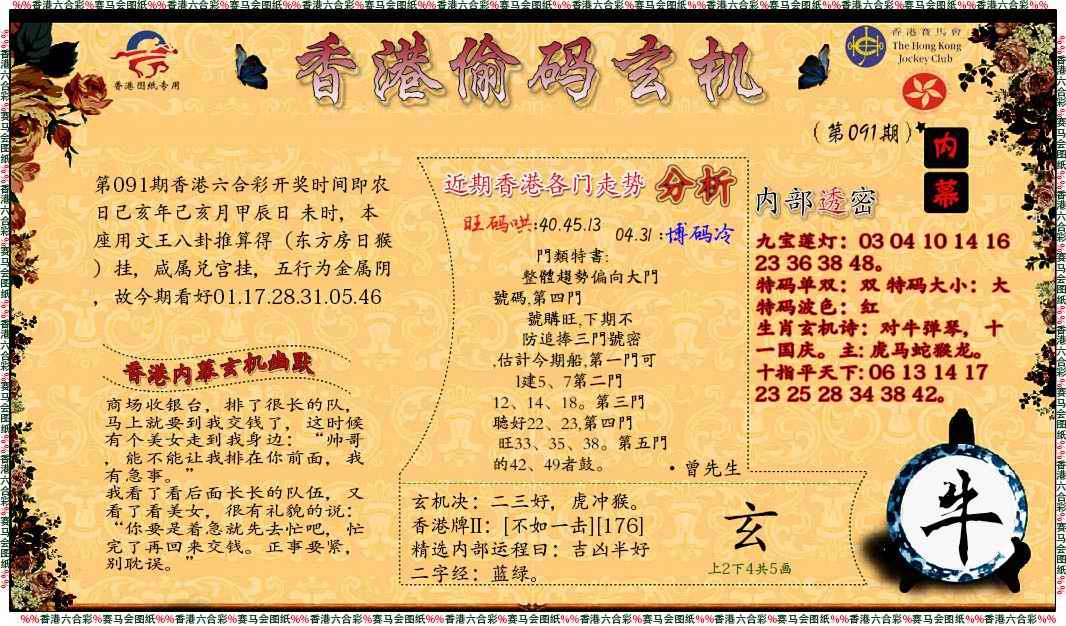 %%香港六合彩%赛马会图纸%%香港六合彩%赛马会图纸%%香港六合彩%赛马会图纸%%香港六合彩%赛马会图纸%%香港六合彩%赛马会图纸%%香港六合彩%赛马会图纸%%香港六合彩%赛马会图纸%%香港六合彩%%
香港图纸专用
香港偷码玄机
香港賽馬會
The Hong Kong
Jockey Club
(第091期)
内
幕
第091期香港六合彩开奖时间即农
日己亥年己亥月甲辰日 未时，本
座用文王八卦推算得（东方房日猴
）挂，咸属兑宫挂，五行为金属阴
，故今期看好01.17.28.31.05.46
香港内幕玄机幽默
商场收银台，排了很长的队，
马上就要到我交钱了，这时候
有个美女走到我身边：“帅哥
，能不能让我排在你前面，我
有急事。”
我看了看后面长长的队伍，又
看了看美女，很有礼貌的说：
“你要是着急就先去忙吧，忙
完了再回来交钱。正事要紧，
别耽误。”
近期香港各门走势 分析
旺码哄:40.45.13 04.31:博码冷
門類特書:
整體趨勢偏向大門
號碼,第四門
號購旺,下期不
防追捧三門號密
,估計今期船,第一門可
1建5、7第二門
12、14、18。第三門
聽好22、23,第四門
旺33、35、38。第五門
的42、49者鼓。
·曾先生
玄机决：二三好，虎冲猴。
香港牌II：[不如一击][176]
精选内部运程日：吉凶半好
二字经：蓝绿。
玄
上2下4共5画
内部透密
九宝莲灯：03 04 10 14 16
23 36 38 48。
特码单双：双 特码大小：大
特码波色：红
生肖玄机诗：对牛弹琴，十
一国庆。主:虎马蛇猴龙。
十指平天下:06 13 14 17
23 25 28 34 38 42。
牛
%%香港六合彩%赛马会图纸%%香港六合彩%赛马会图纸%%香港六合彩%赛马会图纸%%香港六合彩%赛马会图纸%%香港六合彩%赛马会图纸%%香港六合彩%赛马会图纸%%香港六合彩%赛马会图纸%%香港六合彩%%